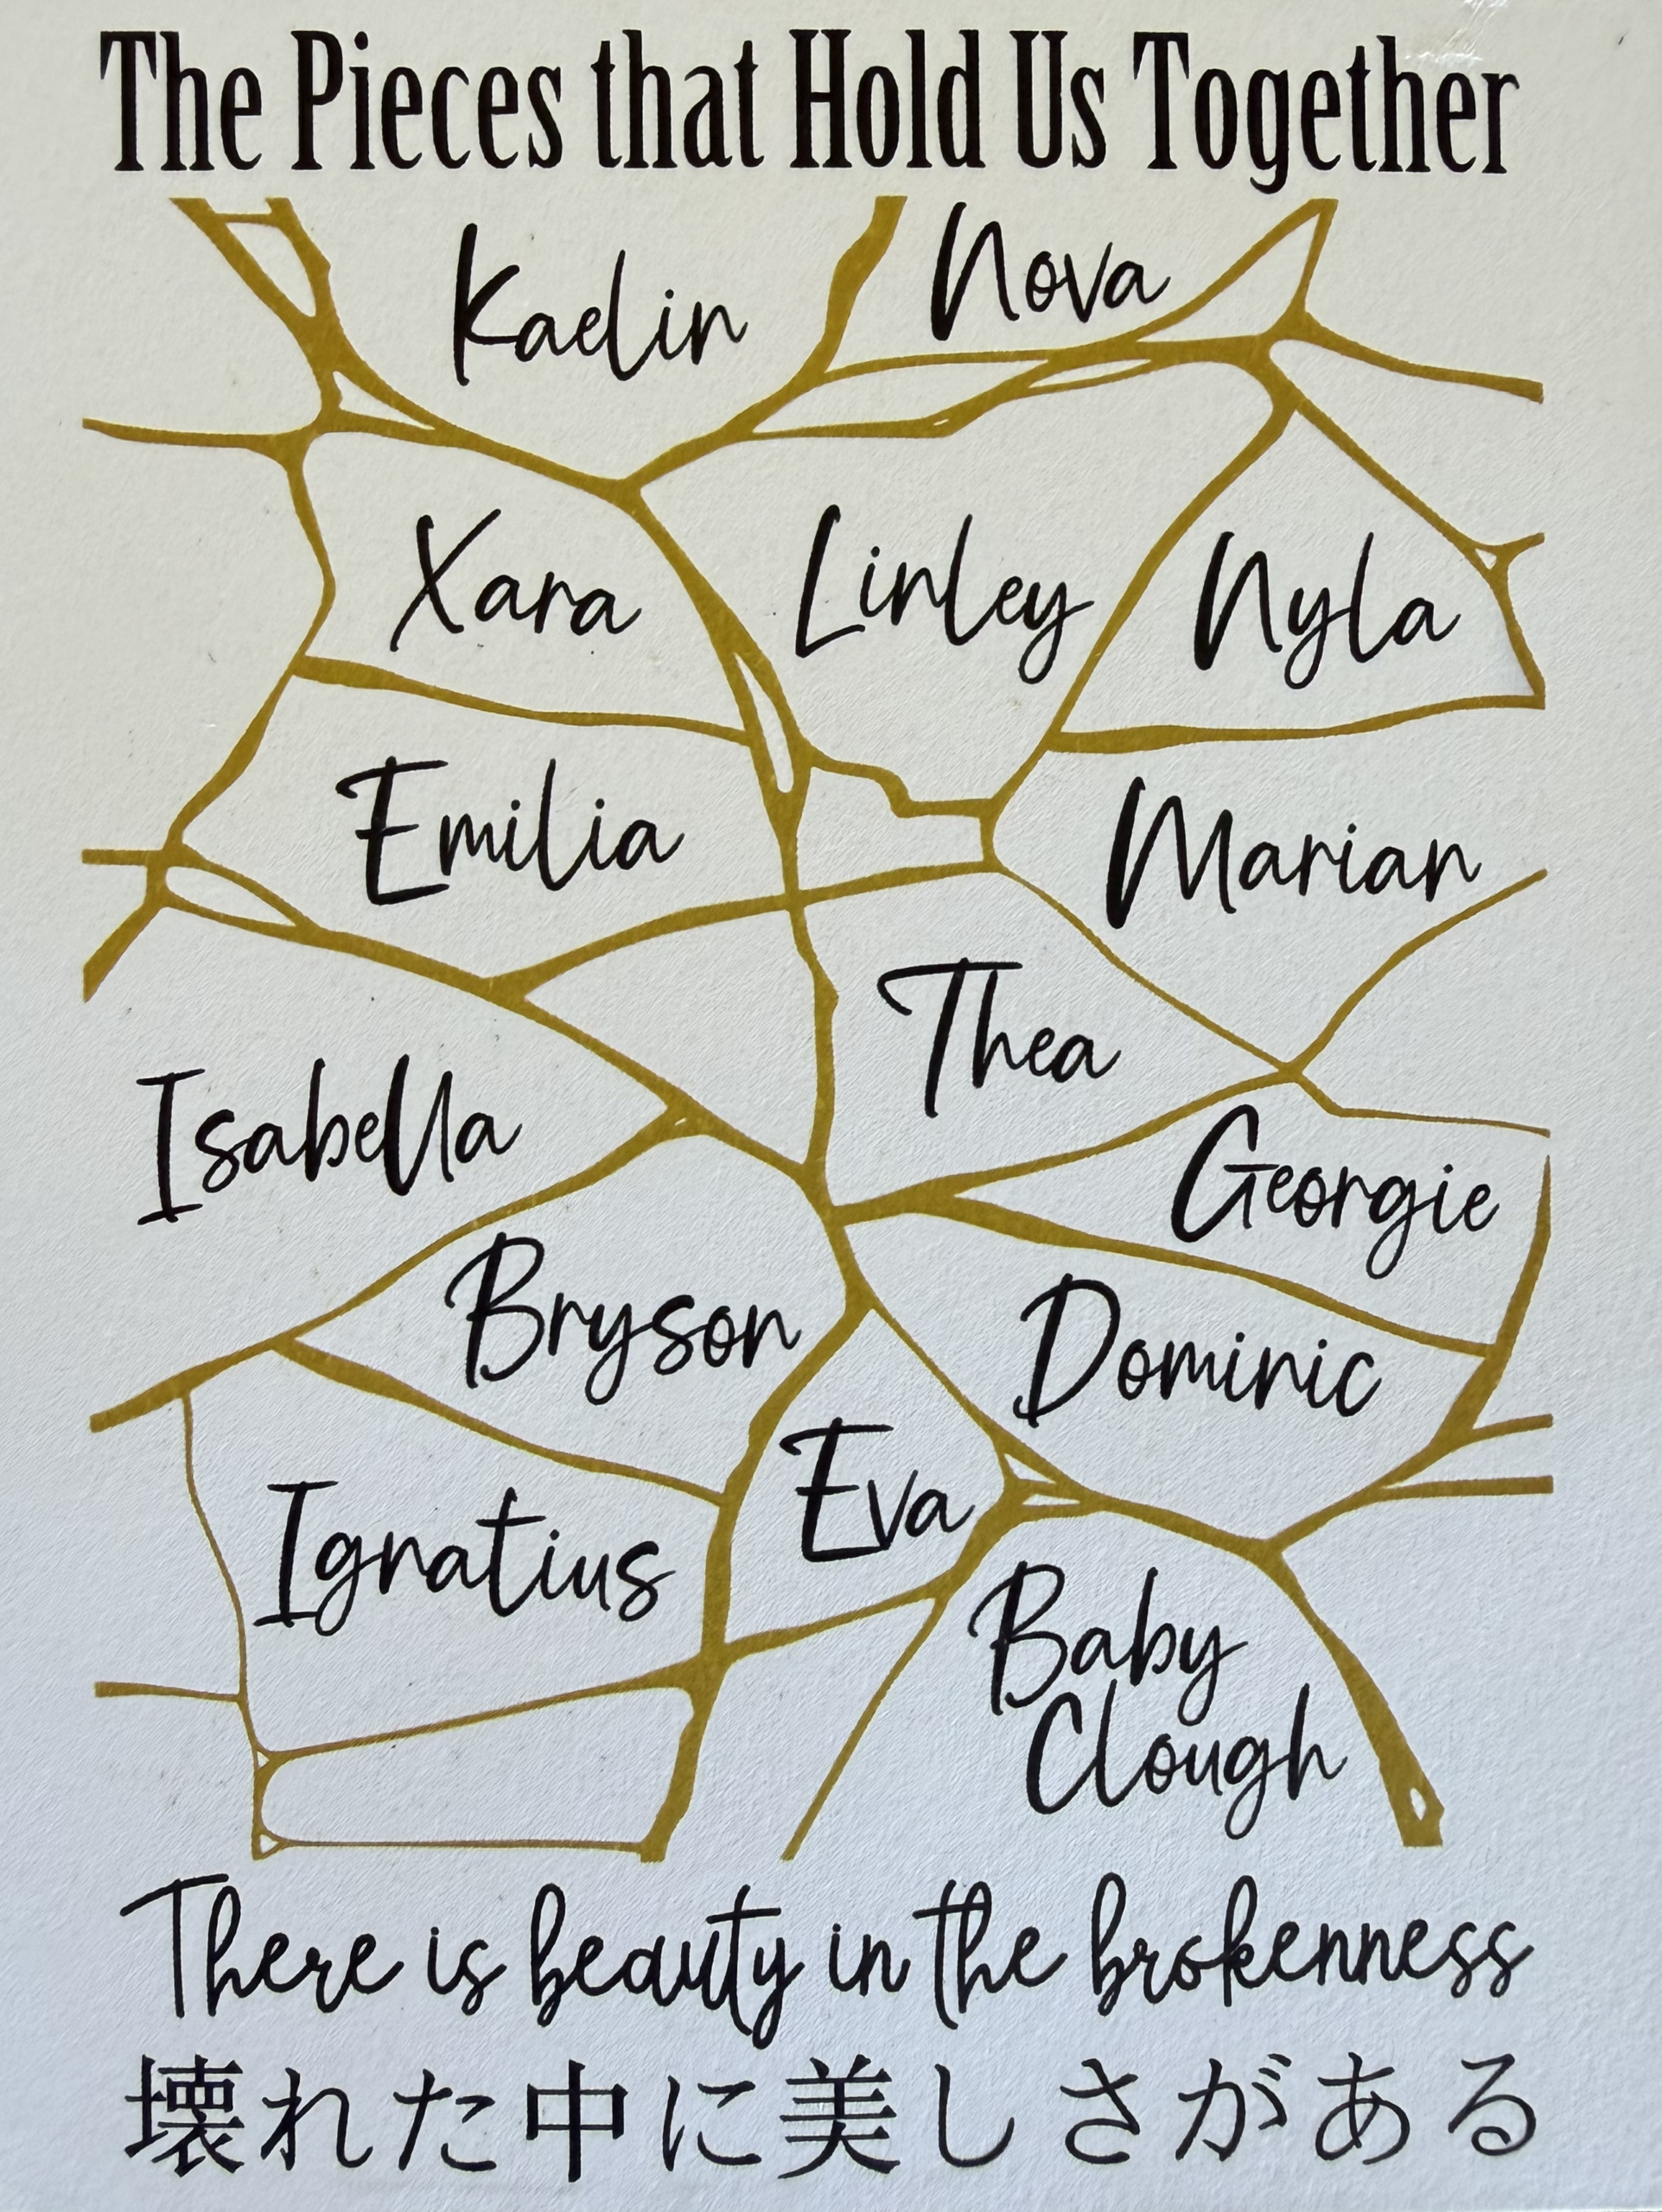 The Pieces that Hold Us Together
Kaelin
Nova
Xara
Linley
Nyla
Emilia
Marian
Thea
Isabella
Georgie
Bryson
Dominic
Eva
Ignatius
Baby
Clough
There is beauty in the brokenness
壊れた中に美しさがある